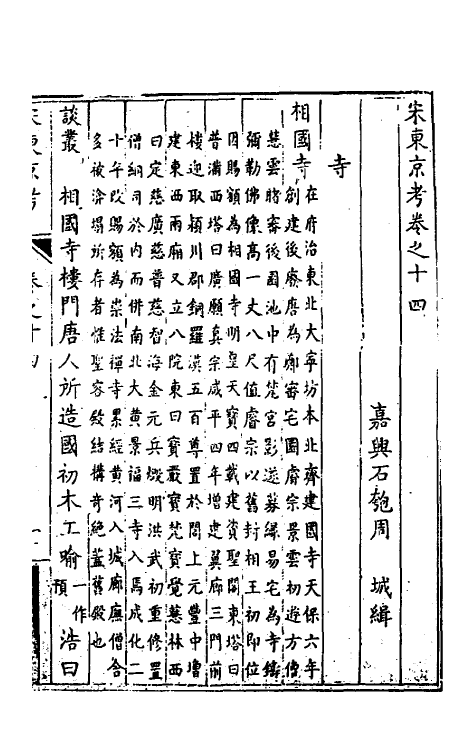 宋東京考卷之十四
嘉興石匏周　城緝
寺
相國寺
在府治東北大寧坊本北齊建國寺天保六年
創建後廢唐為鄭審宅園睿宗景雲初遊方僧
慧雲睹審後園池中有梵宮影遂募緣易宅為寺鑄
彌勒佛像高一丈八尺值睿宗以舊封相王初即位
因賜額為相國寺明皇天寶四載建資聖閣東塔曰
普滿西塔曰廣願真宗咸平四年增建翼廊三門前
樓迎取潁川郡銅羅漢五百尊置於閣上元豐中增
建東西兩廂又立八院東曰寶嚴寶梵寶覺慧林西
曰定慈廣慈普慈智海金元兵燬明洪武初重修置
僧綱司於內而併南北大黃景福三寺入焉成化二
十年改賜額為崇法禪寺累經黃河入城廊廡僧舍
多被渰塌所存者惟聖容殿結構奇絕蓋舊殿也
談叢　相國寺樓門唐人所造國初木工喻一作預浩曰
宋東京考
卷之十四
一